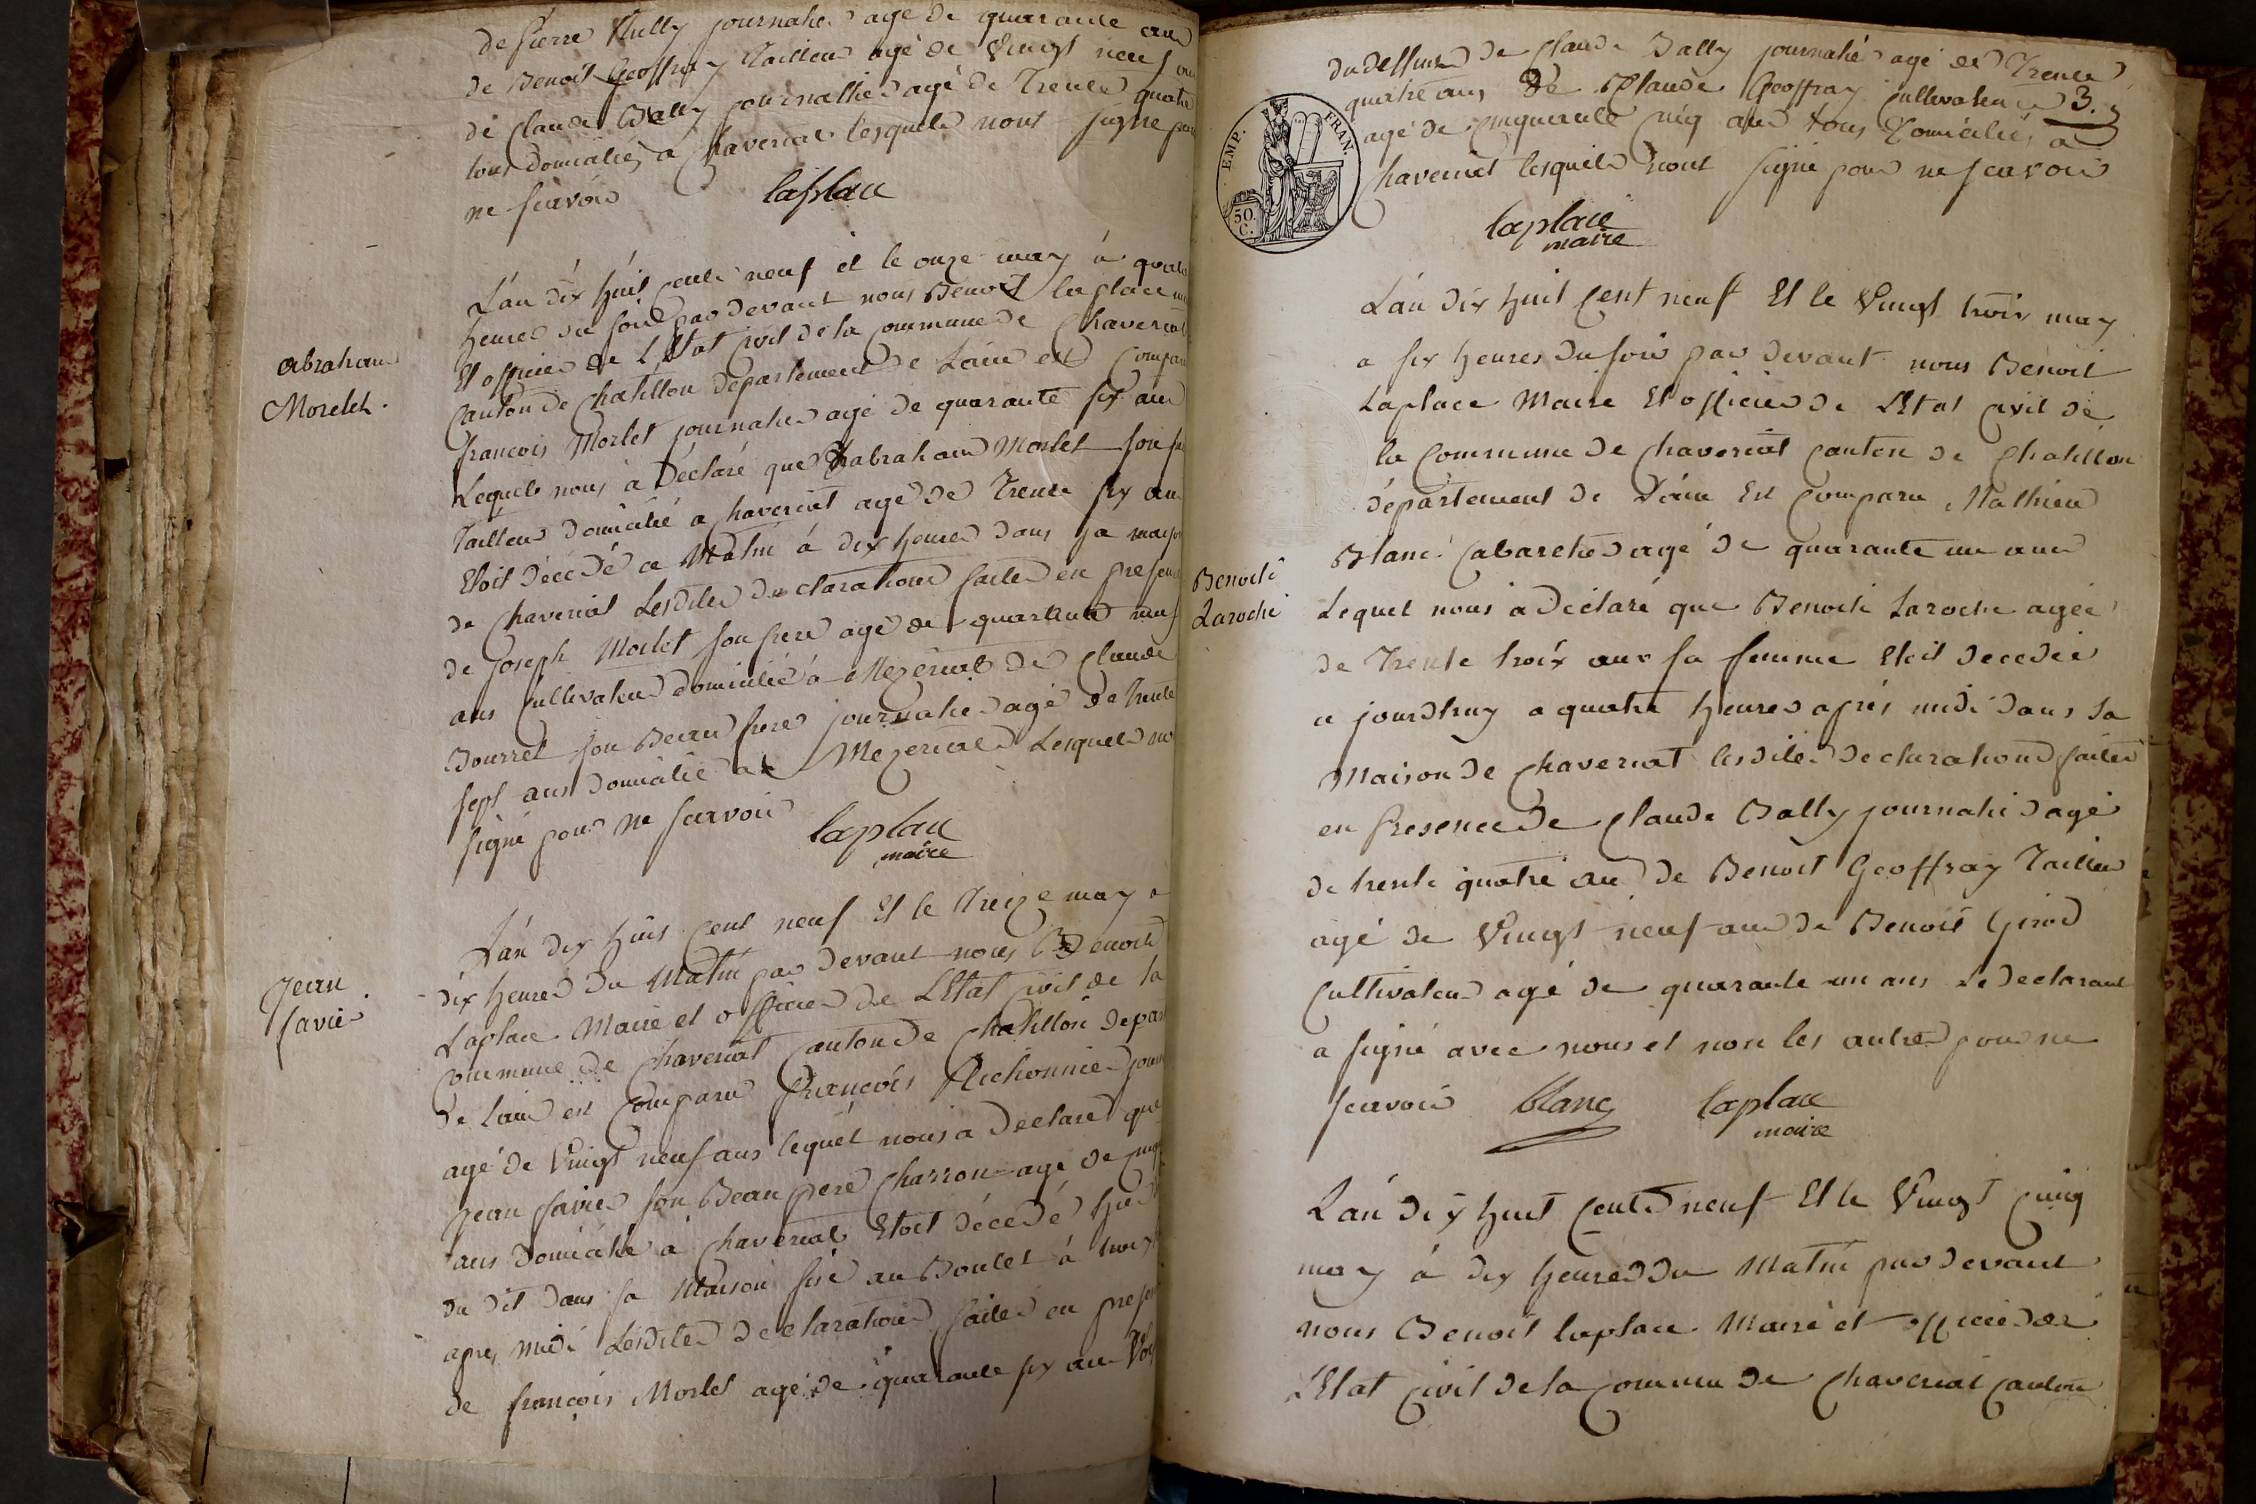 de pierre Nully journalie agé de quarante ans
de Benoit Geoffray Tailleur agé de Vingt neuf ans
de Claude Bally journallie agé de Trente quatre
tous domicilies a Chaveriat lesquels nont signe pour
ne scavoir
laplace
abraham
Morelet.
L'an dix huit cents neuf et le onze may à quatre
heures du soir par devant nous Benoit laplace
Et officier de L'Etat Civil de la Commune de Chaveriat
Canton de Chatillon département de Lain est Comparu
francois Morlet journalie agé de quarante six ans
Lequel nous à Déclaré que abraham Morlet son
Tailleur domicilié a Chaveriat agé de Trente six ans
Etoit décédé ce Matin à dix heures dans sa maison
de Chaveriat Lesdites declarations faites en presence
de joseph Morlet son frere agé de quarante neuf
ans Cultivateur domicilié à Mezeriat de Claude
Bourret son Beau frere journalie agé de trente
sept ans domicilié a Mezeriat Lesquels
signé pour ne scavoir
laplace
maire
Jean
favier
L'an dix huit cent neuf Et le Treize may a
dix heures du Matin par devant nous Benoit
Laplace Maire et officier de L'Etat Civil de la
Commune de Chaveriat Canton de Chatillon depart
de Lain est Comparu François Richonnier
agé de Vingt neuf ans lequel nous a Declaré que
Jean favier son Beau pere Charron agé de
ans domicilié à Chaveriat Etoit décédé hier
du dit dans sa Maison sise au Boulet à
apres midi Lesdites declarations faites en presen
de françois Morlet agé de quarante six ans
EMP. FRAN.
50. C.
3.
du dessus de Claude Bally journalié agé de Trente
quatre ans de Claude Geoffray Cultivateur
agé de Cinquante Cinq ans tous Domicilies a
Chaveriat lesquels nont signé pour ne scavoir
laplace
maire
L'an dix huit Cent neuf Et le Vingt trois may
a six heures du soir par devant nous Benoit
Laplace Maire Et officier de L'Etat Civil de
la Commune de Chaveriat Canton de Chatillon
département de Lain Est Comparu Mathieu
Blanc Cabaretie agé de quarante un ans
Benoite
Laroche
Lequel nous a Déclaré que Benoite Laroche agée
de Trente trois ans sa femme Etoit decedée
ce jourdhuy a quatre heures aprés midi dans sa
Maison de Chaveriat lesdites declarations faites
en Presence de Claude Bally journalié agé
de trente quatre ans de Benoit Geoffray Tailleur
agé de Vingt neuf ans de Benoit Girod
Cultivateur agé de quarante un ans Le declarant
a signé avec nous et non les autres pour ne
scavoir blanc laplace
maire
L'an dix huit Cents neuf Et le Vingt Cinq
may à dix heures du Matin par devant
nous Benoit laplace Maire et officier de
L'Etat Civil de la Commune de Chaveriat Canton